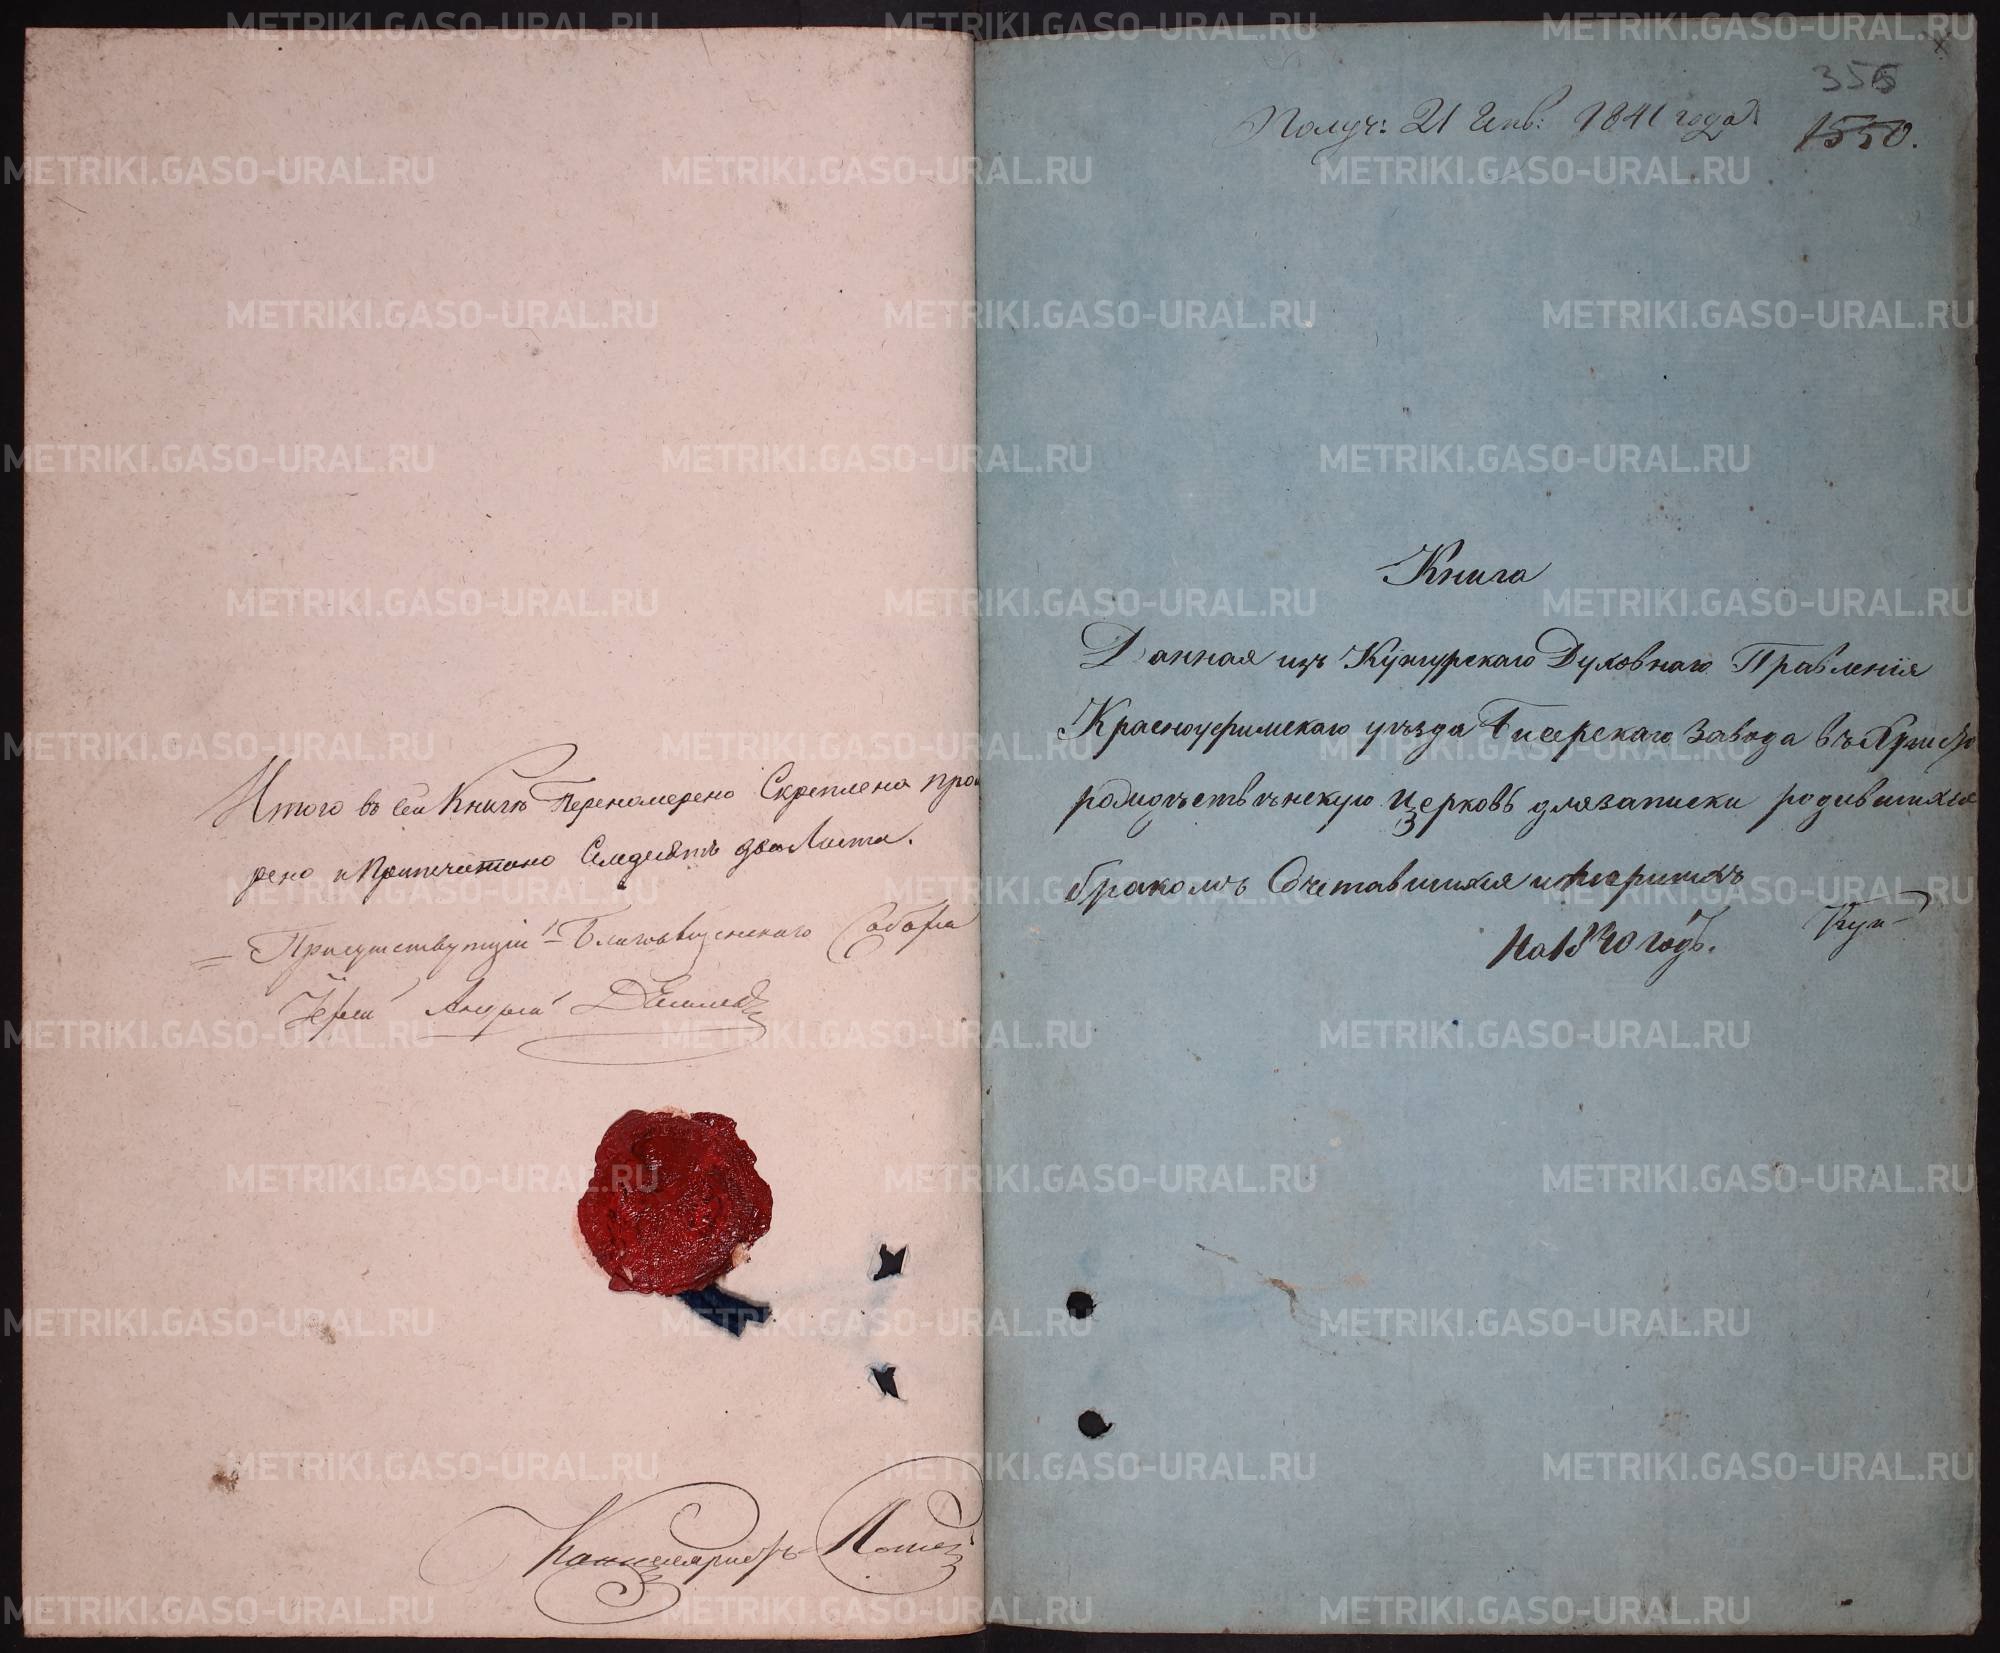 Итого въ сей Книгѣ Перенамерено Скреплена про
рено и Припечатано Семдесятъ два Листа.
Присутствующій Благовѣщенскаго Собора
Іерей Андрей
Канцеляристъ
Получ: 21 Генв: 1841 года
355
1550.
Книга
Данная изъ Кунгурскаго Духовнаго Правленія
Красноуфимскаго уѣзда Бисерскаго Завода въ Христо
рождественскую Церковь для записки родившихся
бракомъ Сочетавшихся и умершихъ
на 1840 годъ.
Кун-
METRIKI.GASO-URAL.RU